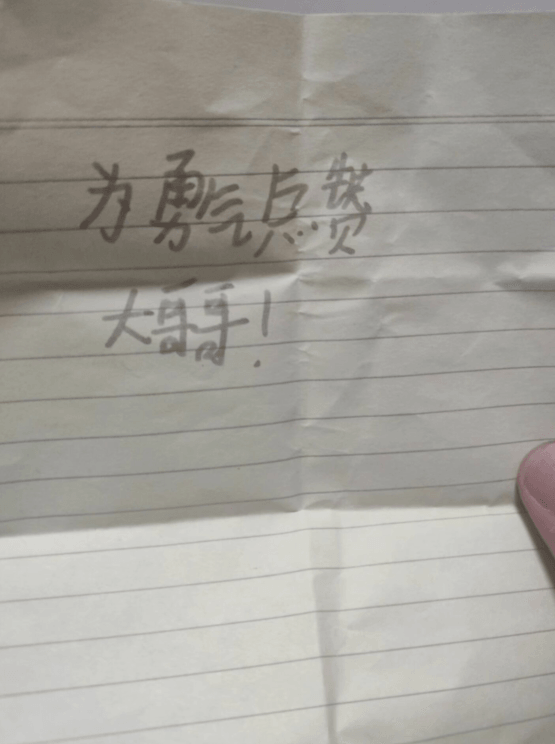 为勇气点赞
大哥哥!